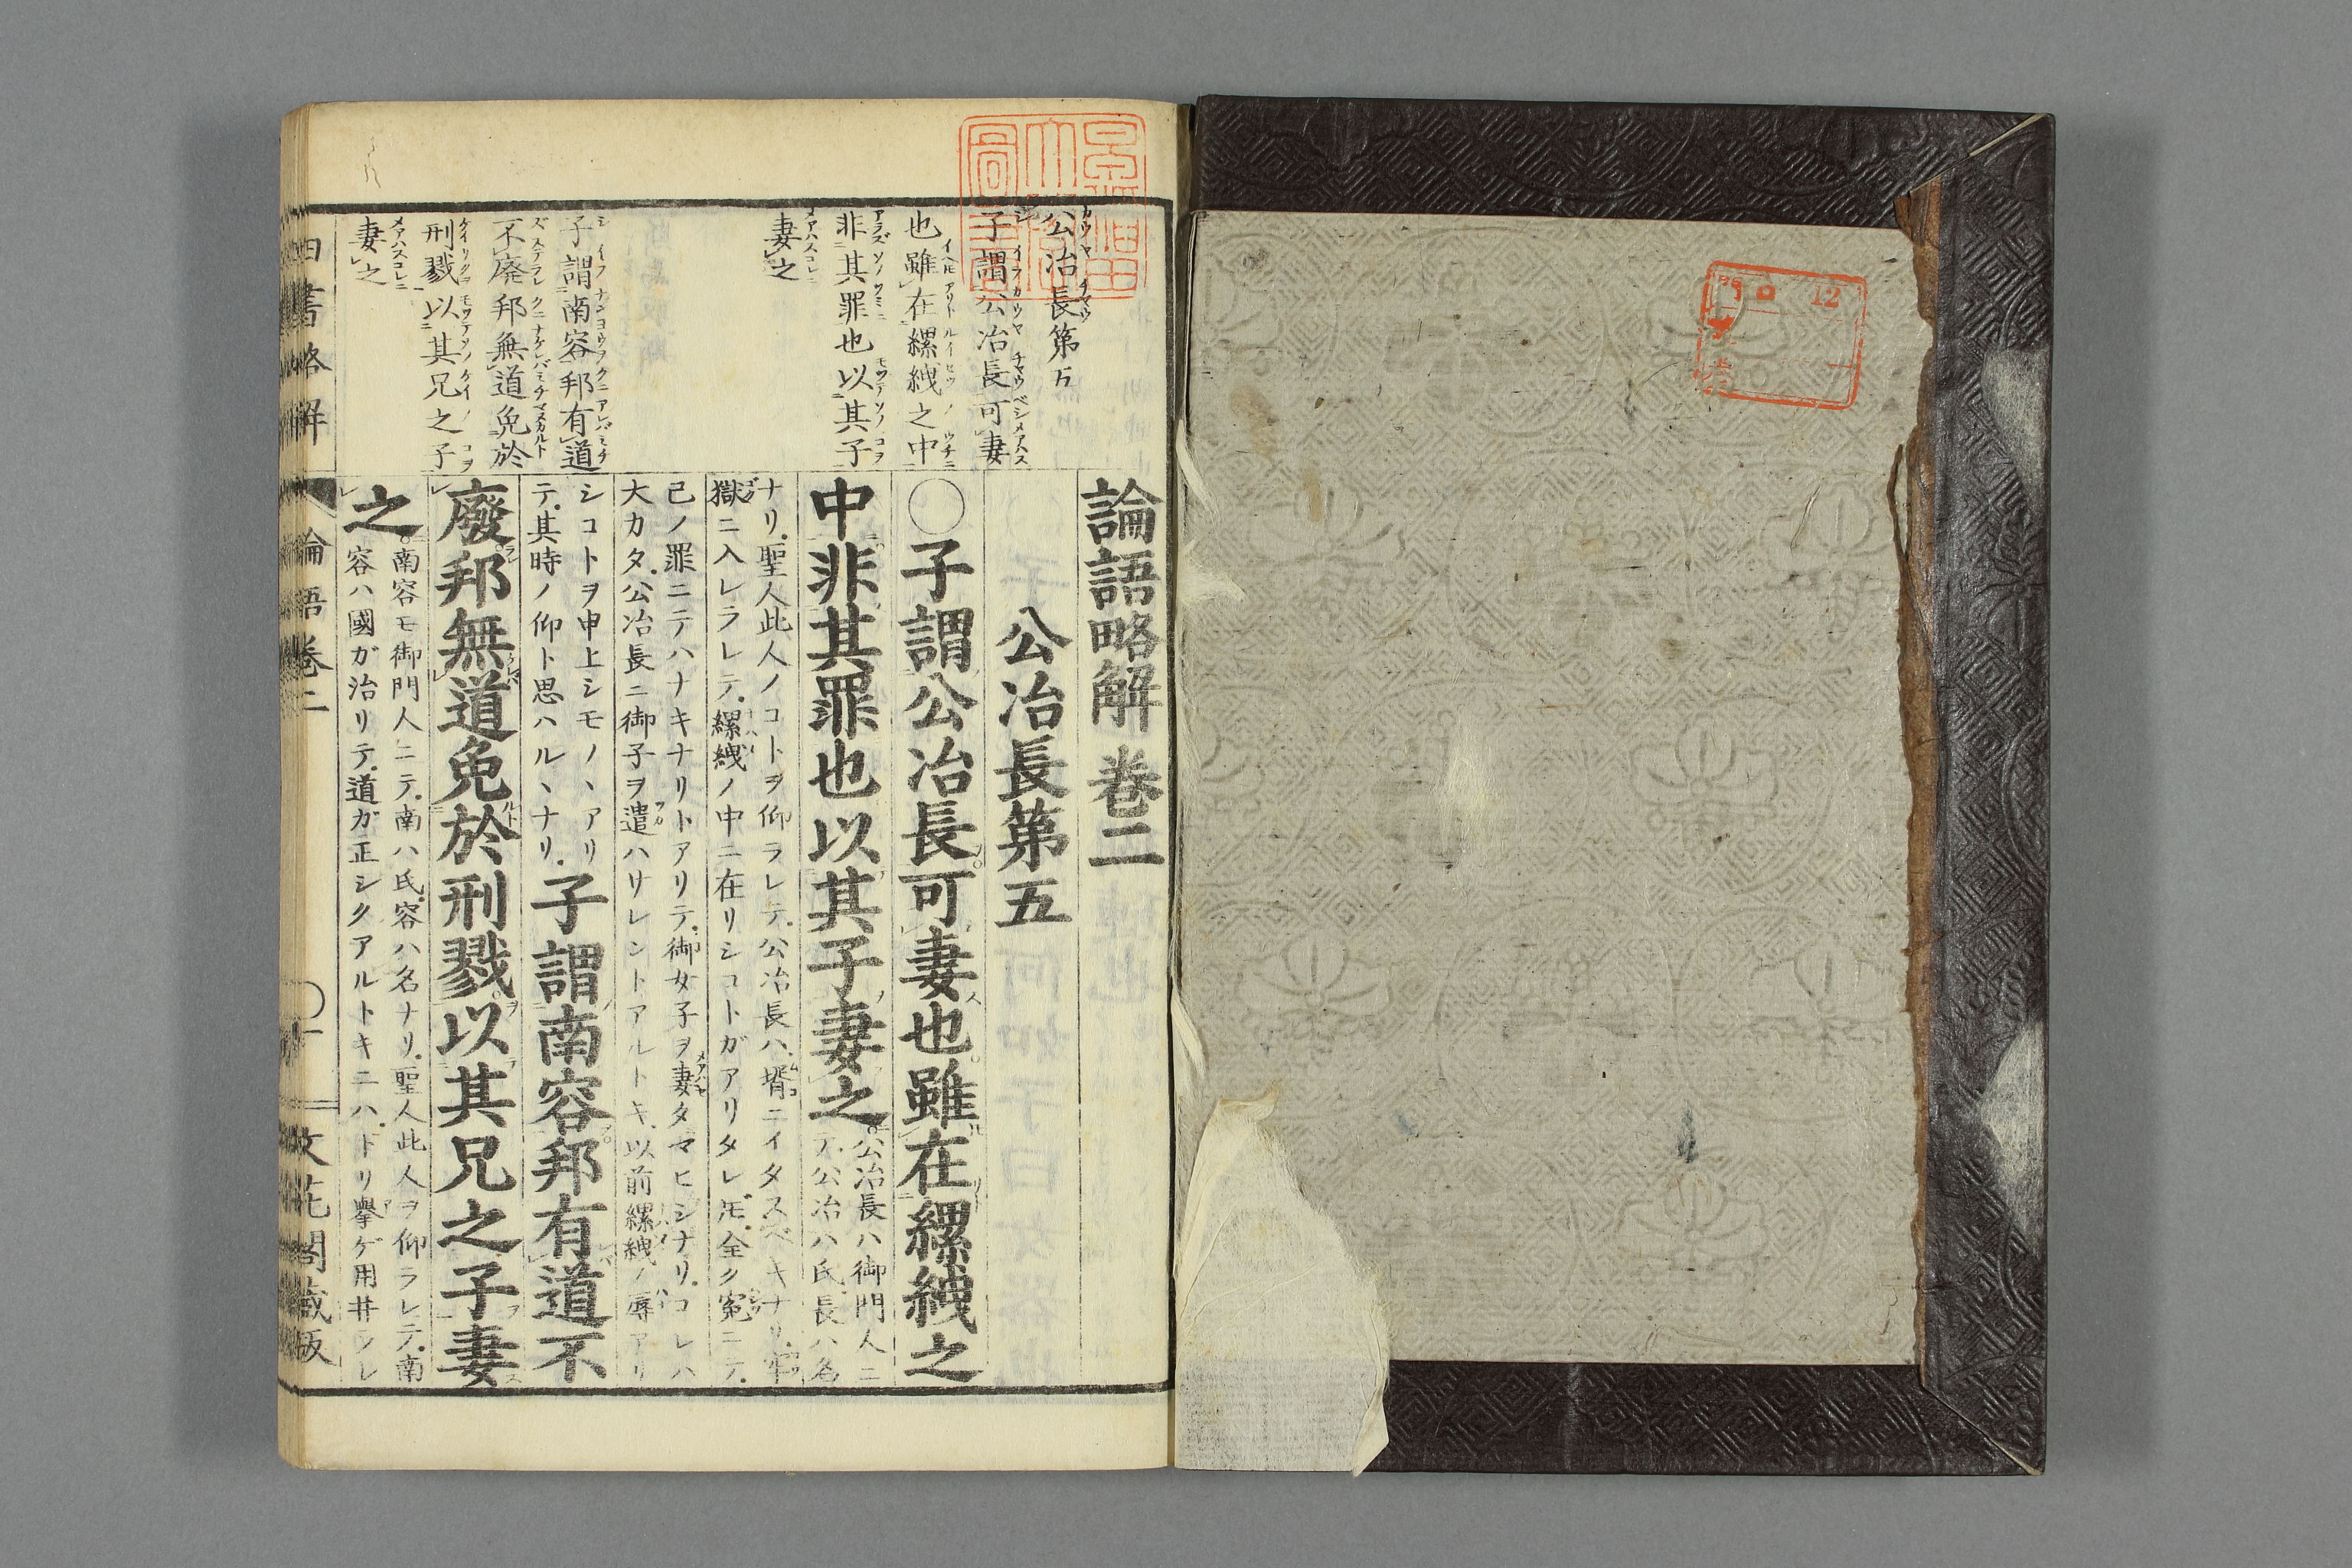 論語略解 卷二
公冶長第五
〇子謂公冶長可妻也雖在縲絏之
中非其罪也以其子妻之
公冶長ハ御門人ニ
テ公冶ハ氏長ハ名
ナリ聖人此人ノコトヲ仰ラレテ公冶長ハ壻ニイタスベキナリ牢
獄ニ入レラレテ縲絏ノ中ニ在リシコトガアリタレ𪜈全ク冤ニテ
己ノ罪ニテハナキナリトアリテ御女子ヲ妻タマヒシナリコレハ
大カタ公冶長ニ御子ヲ遣ハサレントアルトキ以前縲絏ノ辱アリ
シコトヲ申上シモノヽアリ
テ其時ノ仰ト思ハルヽナリ
子謂南容邦有道不
廢邦無道免於刑戮以其兄之子妻
之
南容モ御門人ニテ南ハ氏容ハ名ナリ聖人此人ヲ仰ラレテ南
容ハ國ガ治リテ道ガ正シクアルトキニハトリ擧ゲ用井ラレ
公冶長第五
子謂公冶長可妻
也雖在縲絏之中
非其罪也以其子
妻之
子謂南容邦有道
不廢邦無道免於
刑戮以其兄之子
妻之
四書略解
論語卷二
〇十
文花閣藏版
12